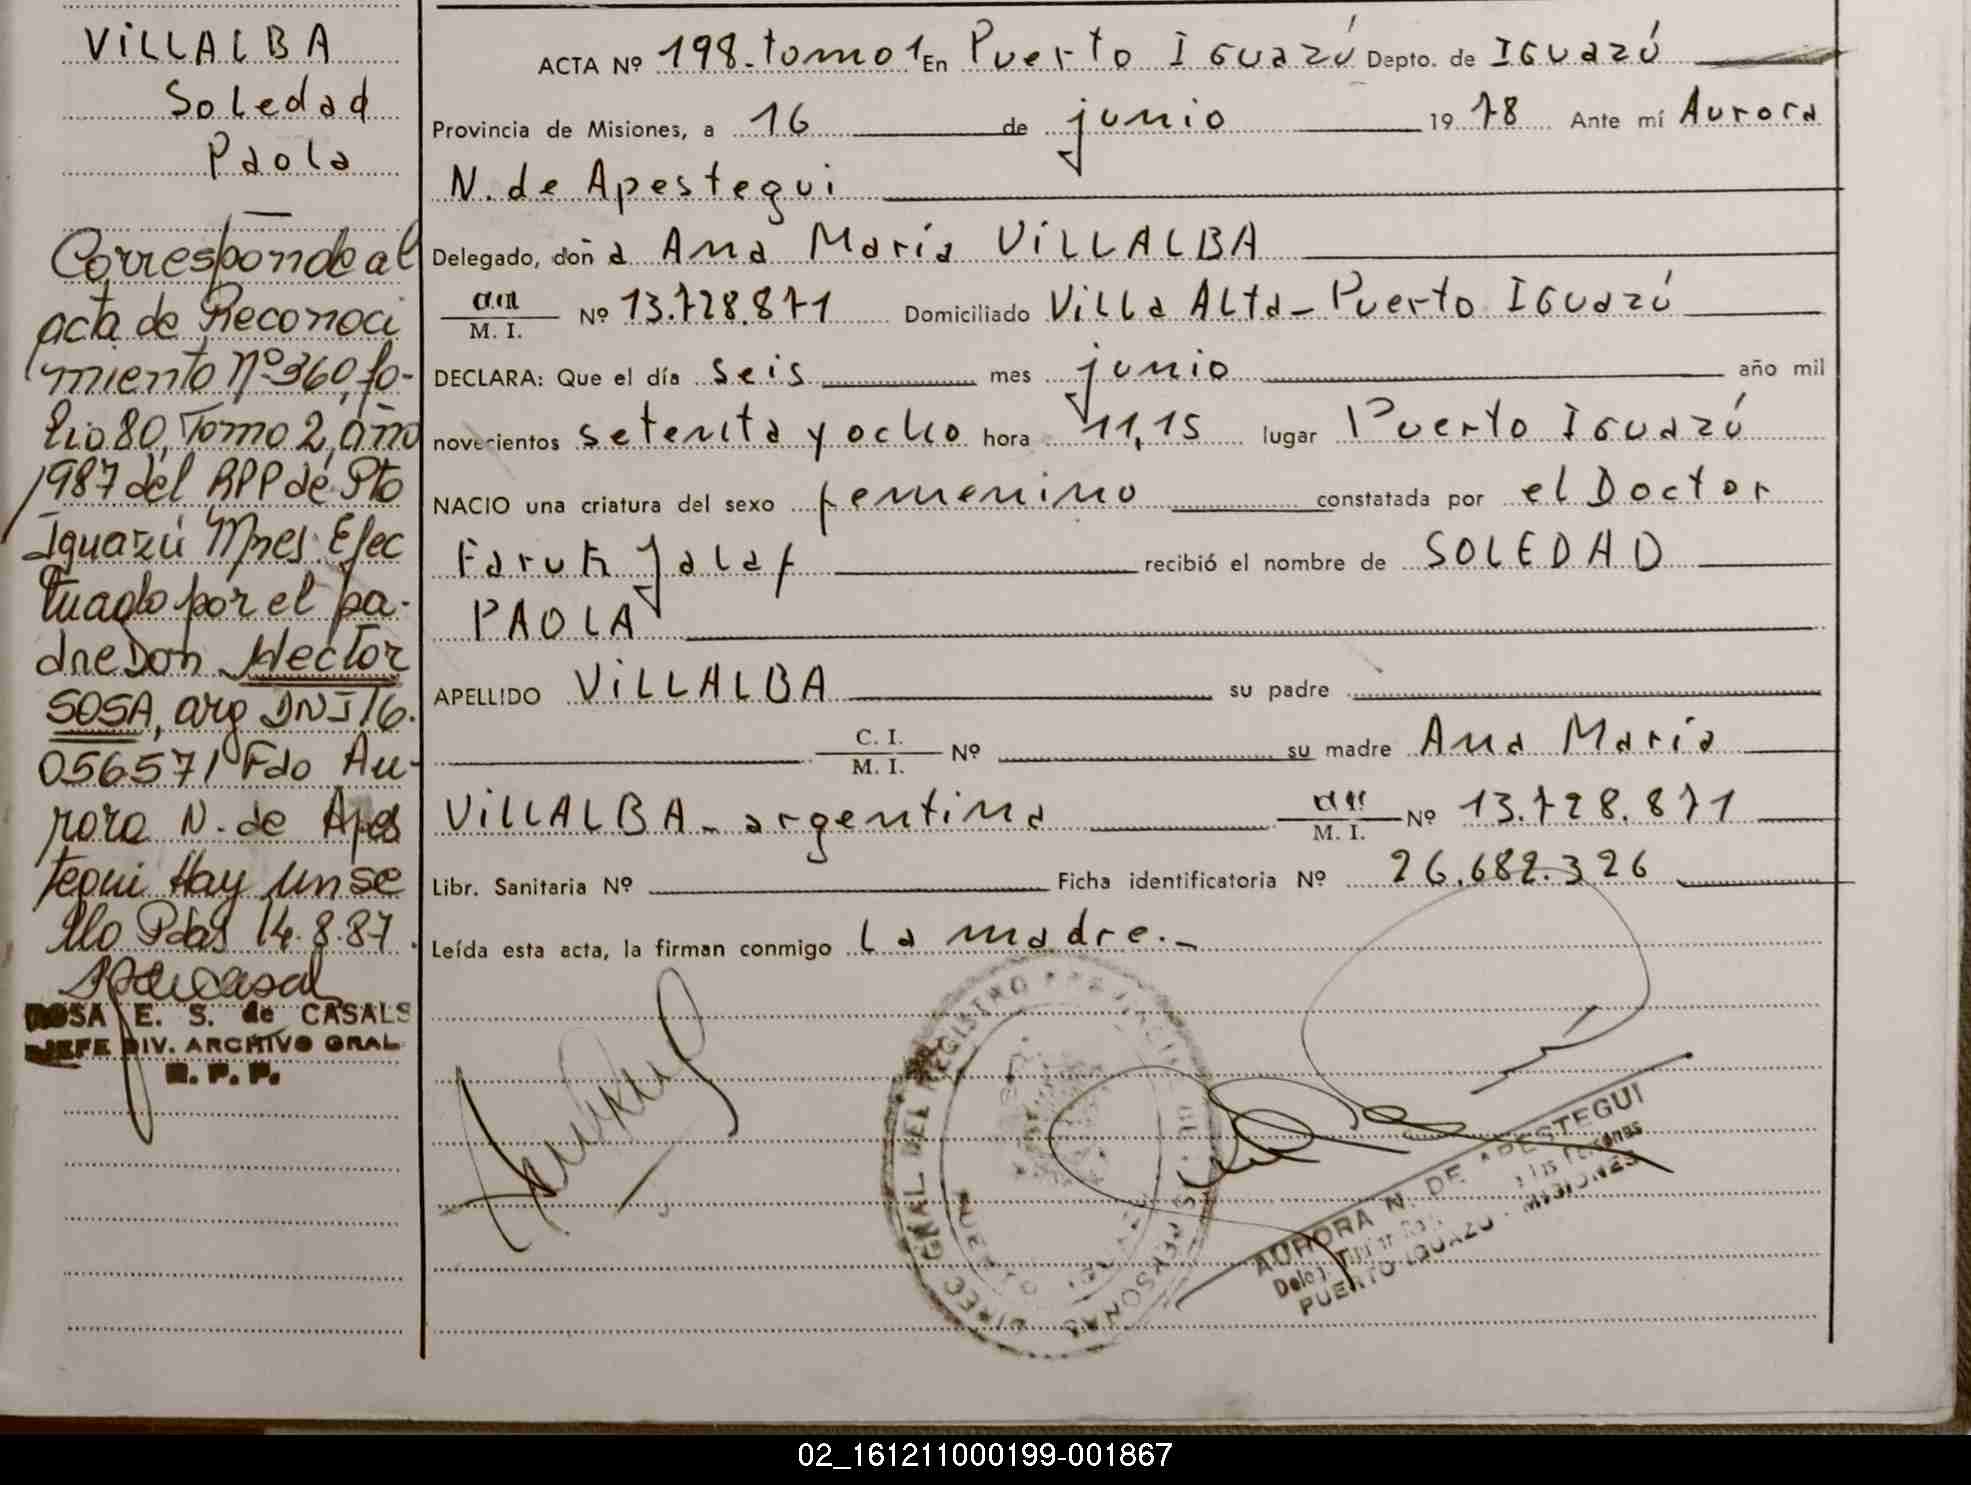 VILLALBA
Soledad
Paola
Corresponde al
acta de Reconoci
miento Nº 360, fo-
lio 80, Tomo 2, año
1987 del RPP de Pto
Iguazú Mnes. Efec
tuado por el pa-
dre Don Hector
SOSA, arg DNI 16.
056571 Fdo Au-
rora N. de Apes
tegui Hay un se
llo Pdas 14.8.87.
ROSA E. S. de CASALS
JEFE DIV. ARCHIVO GRAL
R. P. P.
ACTA Nº 198. tomo 1 En Puerto Iguazú Depto. de Iguazú
Provincia de Misiones, a 16 de junio 1978 Ante mí Aurora
N. de Apestegui
Delegado, doña Ana María VILLALBA
M. I. Nº 13.728.871 Domiciliado Villa Alta - Puerto Iguazú
DECLARA: Que el día seis mes junio año mil
novecientos setenta y ocho hora 11,15 lugar Puerto Iguazú
NACIO una criatura del sexo femenino constatada por el Doctor
Faruk Jalaf recibió el nombre de SOLEDAD
PAOLA
APELLIDO VILLALBA su padre
C. I.
M. I. Nº su madre Ana María
VILLALBA - argentina M. I. Nº 13.728.871
Libr. Sanitaria Nº Ficha identificatoria Nº 26.682.326
Leída esta acta, la firman conmigo la madre.-
DIREC. GRAL. DEL REGISTRO PROVINCIAL DE LAS PERSONAS
AURORA N. DE APESTEGUI
PUERTO IGUAZU - MISIONES
02_161211000199-001867